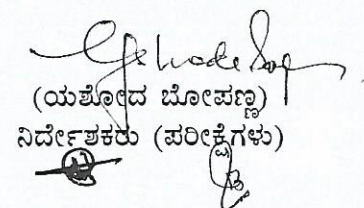 (ಯಶೋದ ಬೋಪಣ್ಣ)
ನಿರ್ದೇಶಕರು (ಪರೀಕ್ಷೆಗಳು)